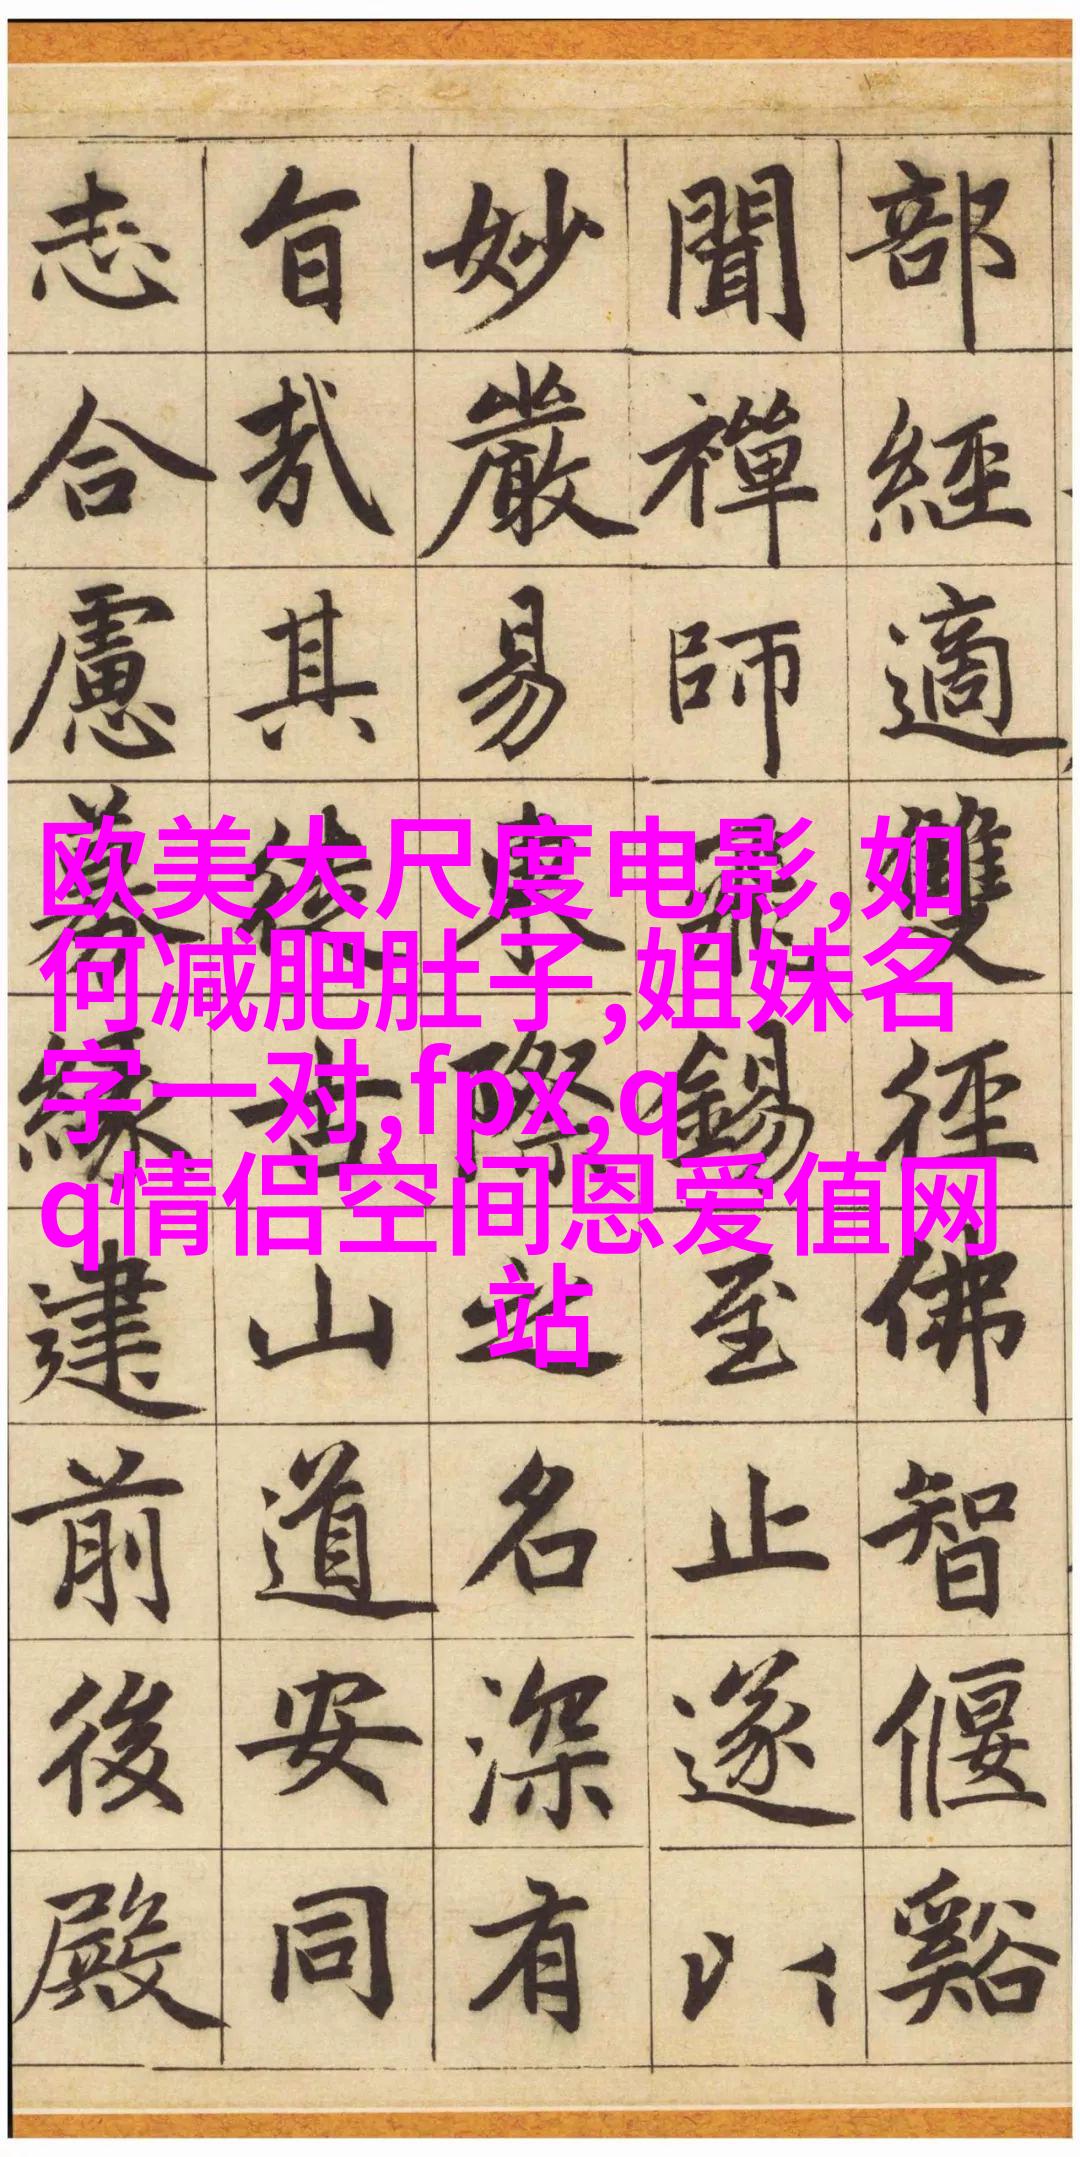 部經適雙徑佛智偃谿
聞禪師飛錫至止遂以
妙嚴易東際之名深有
旨哉其徒古山道安同
志合慮募緣建前後殿
欧美大尺度电影,如
何减肥肚子,姐妹名
字一对,fpx,q
q情侣空间恩爱值网
站